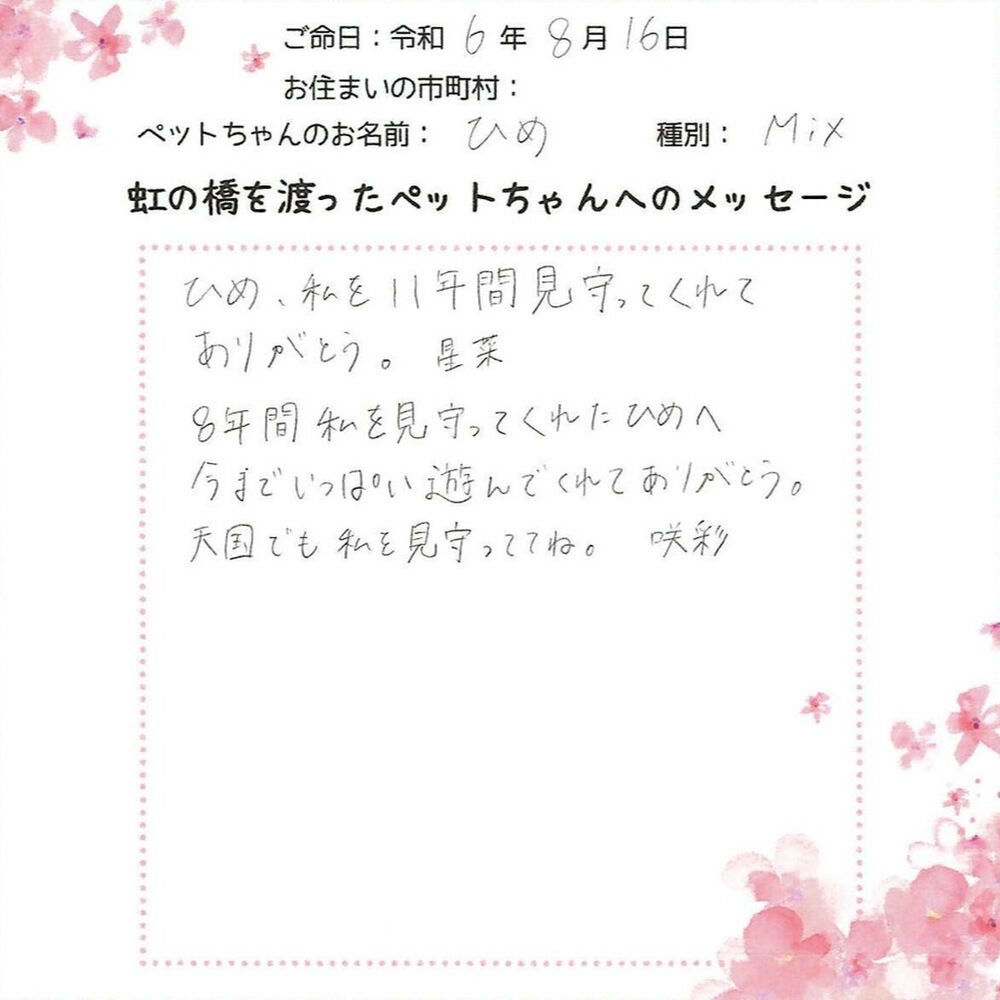 ご命日：令和 6 年 8 月 16日
お住まいの市町村：
ペットちゃんのお名前： ひめ 種別： Mix
虹の橋を渡ったペットちゃんへのメッセージ
ひめ、私を11年間見守ってくれて
ありがとう。 星菜
8年間私を見守ってくれたひめへ
今までいっぱい遊んでくれてありがとう。
天国でも私を見守っててね。 咲彩